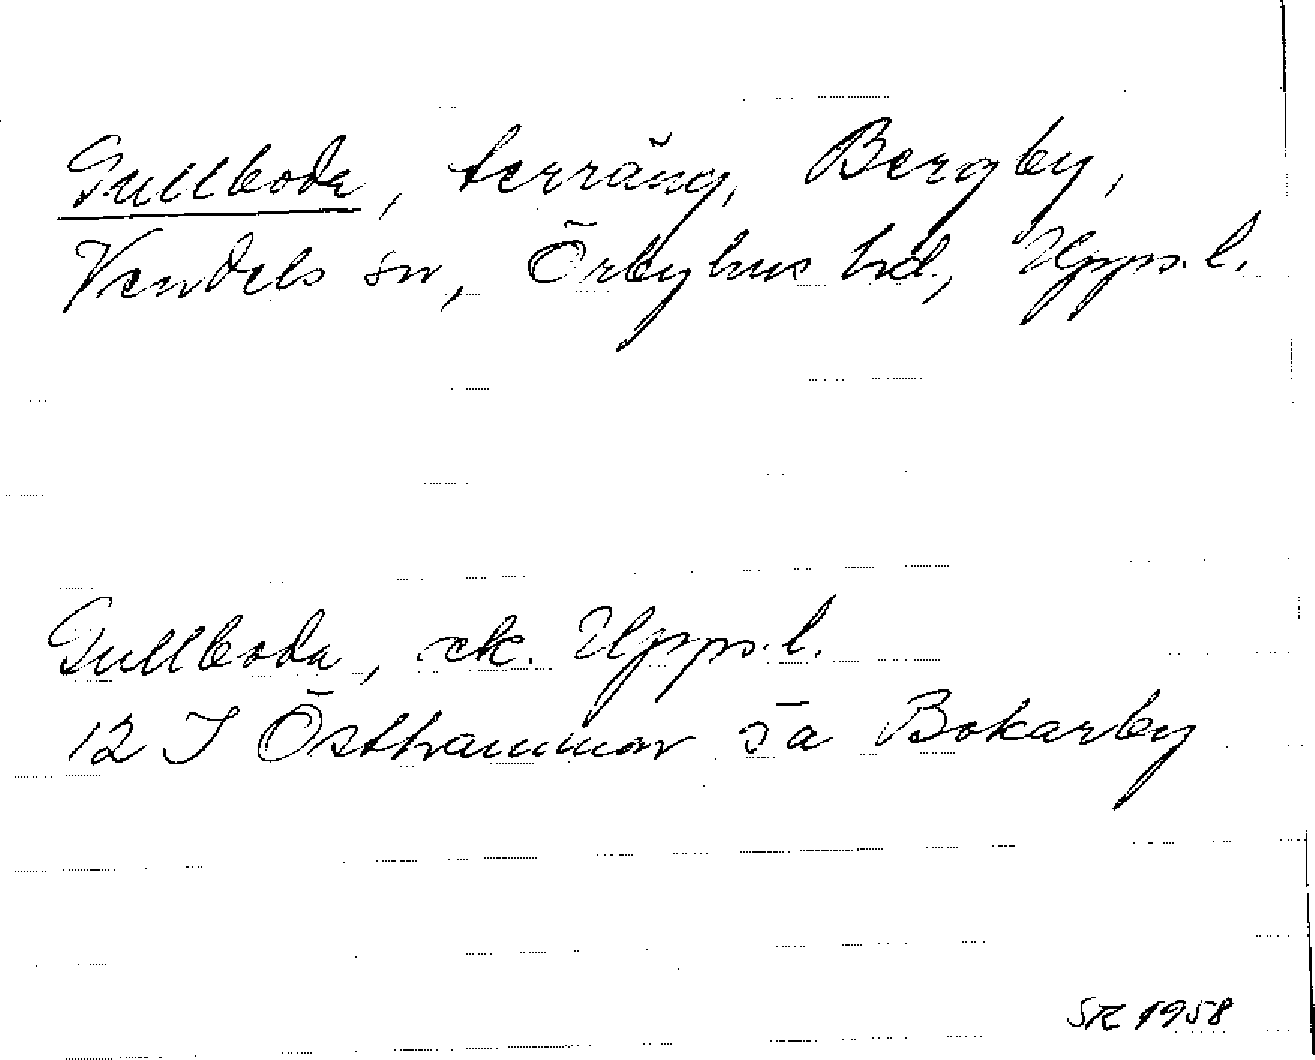 Gullboda, terräng, Bergby,
Vendels sn, Örbyhus hd, Upps. l.
Gullboda, ek. Upps. l.
12 I Östhammar Sa Bokarby
SR 1958